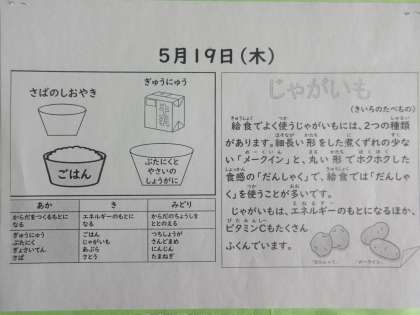 5月19日(木)
さばのしおやき
ぎゅうにゅう
牛乳
ごはん
ぶたにくと
やさいの
しょうがに
あか き みどり
からだをつくるもとに
なる
エネルギーのもとに
なる
からだのちょうしを
ととのえる
ぎゅうにゅう
ぶたにく
ぎょさいてん
さば
ごはん
じゃがいも
あぶら
さとう
つちしょうが
さんどまめ
にんじん
たまねぎ
じゃがいも
(きいろのたべもの)
給食でよく使うじゃがいもには、2つの種類
があります。細長い形をした煮くずれの少な
い「メークイン」と、丸い形でホクホクした
食感の「だんしゃく」で、給食では「だんしゃ
く」を使うことが多いです。
じゃがいもは、エネルギーのもとになるほか、
ビタミンCもたくさん
ふくんでいます。
「だんしゃく」 「メークイン」